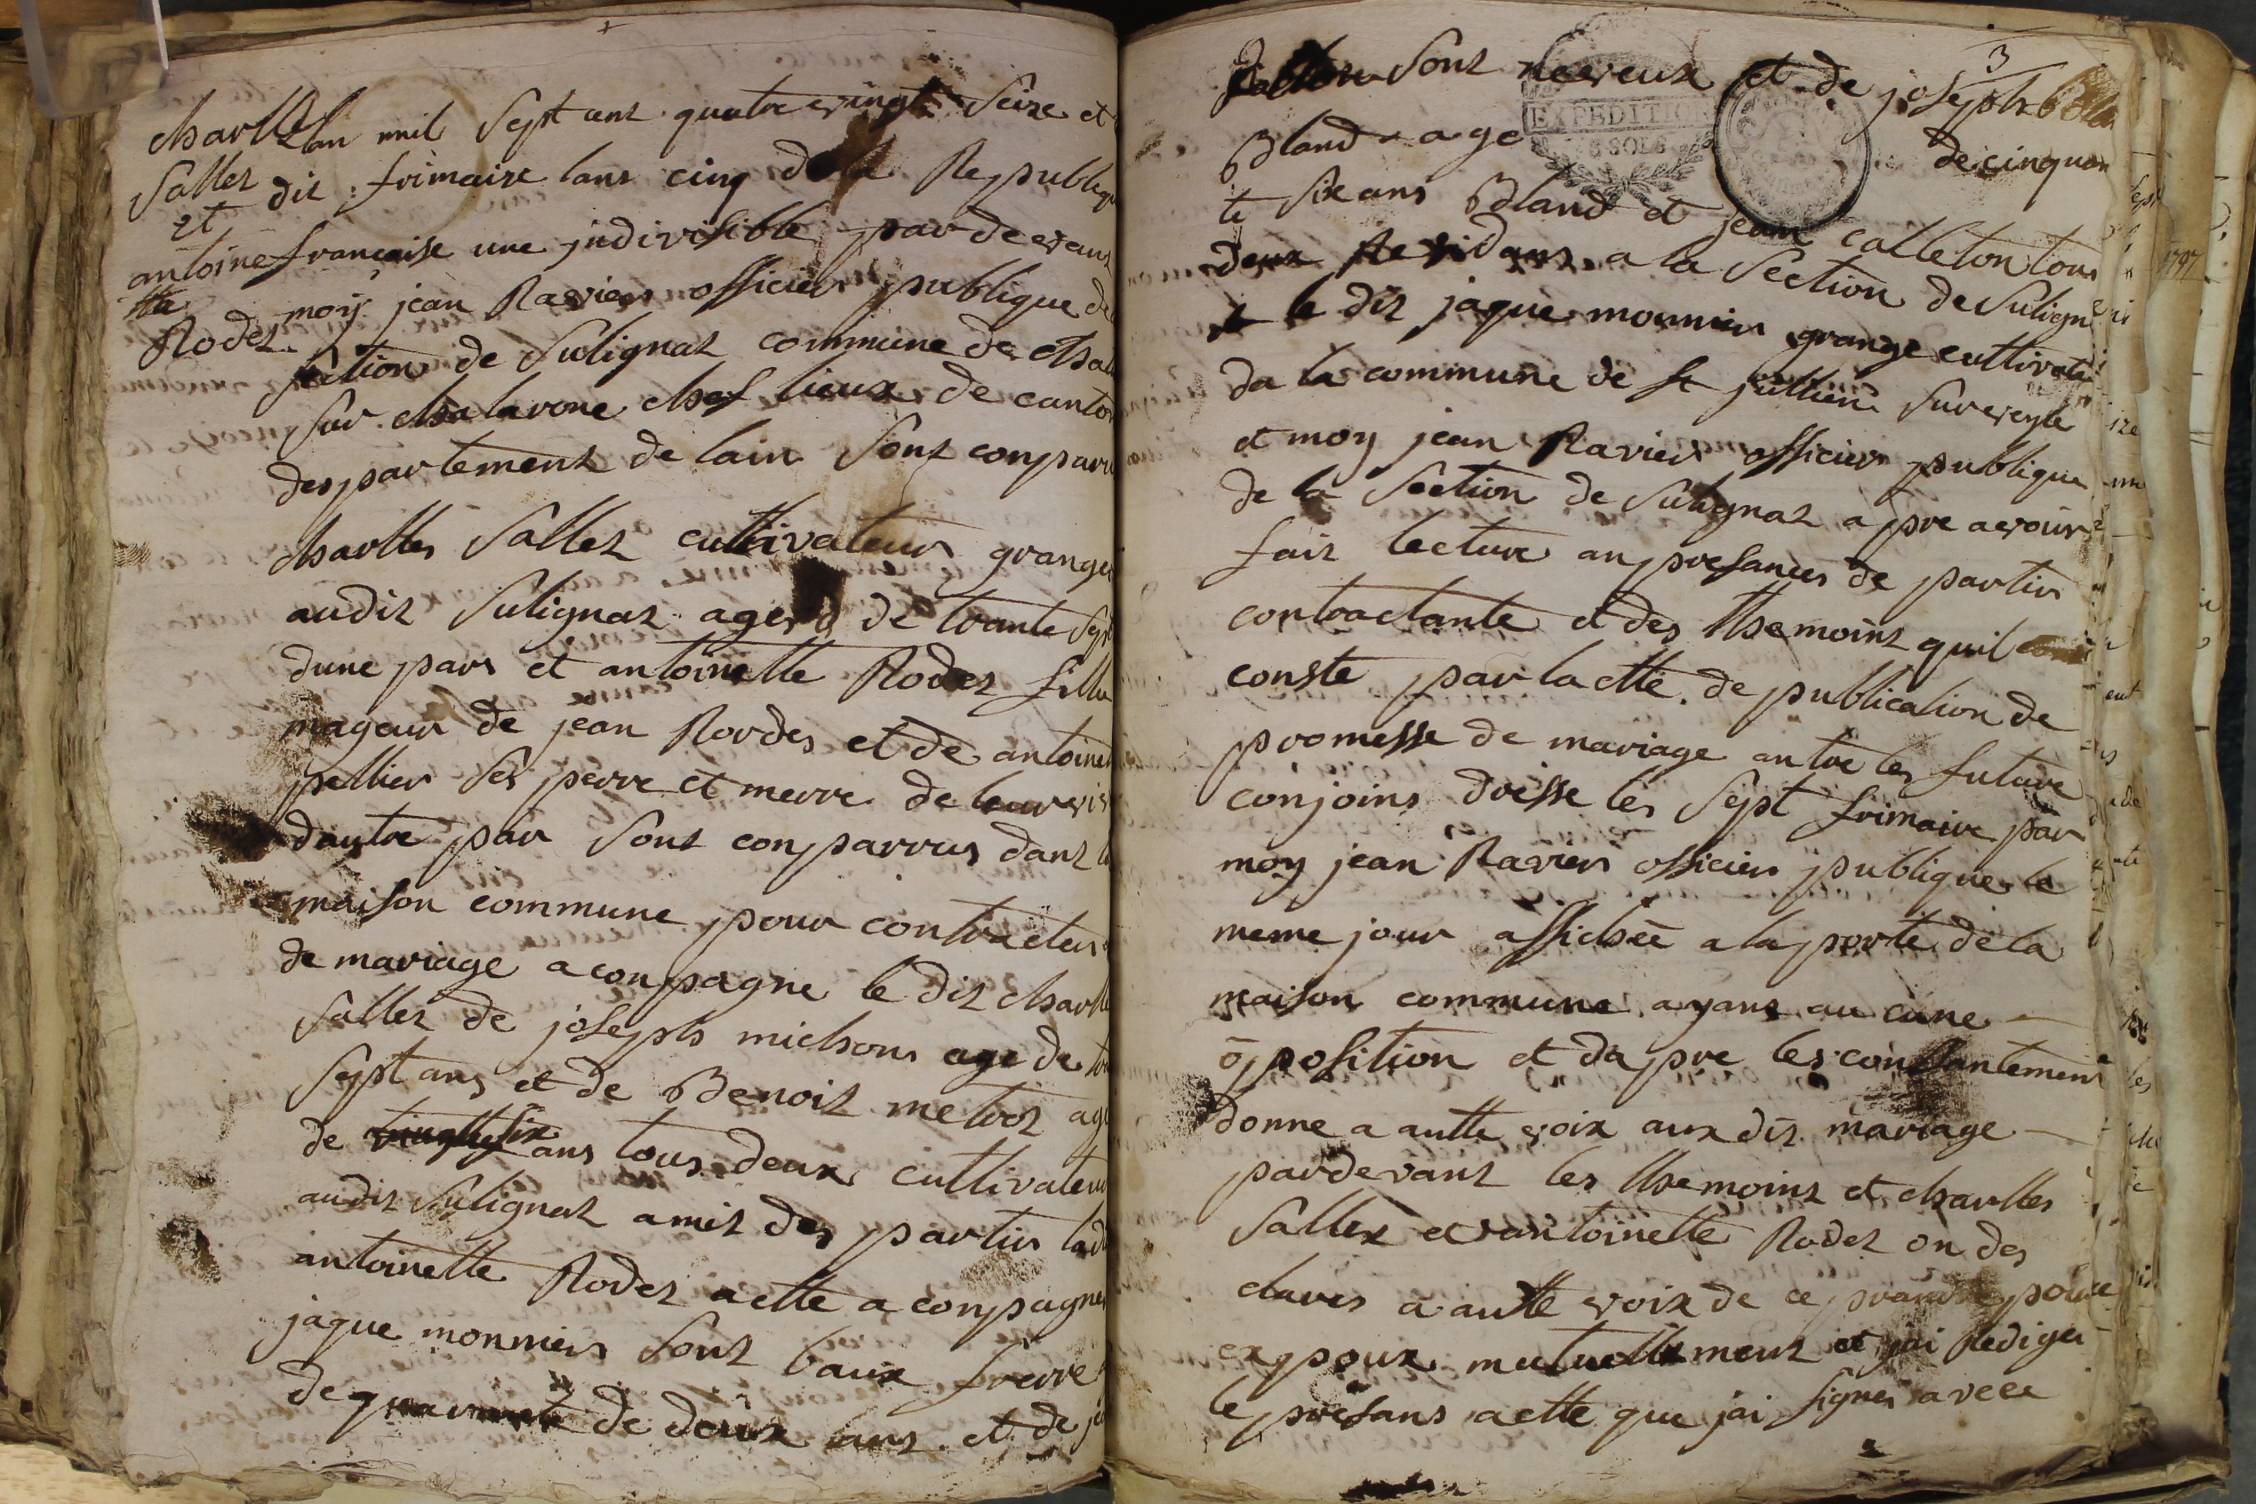 charlle
Sallet
et
antoine
tta
Rodet
lan mil Sept cent quatre vingt Seize et
dit frimaire lans cinq de la Republiqu
francaise une indivisible par devant
moy jean Ravier officier publique de
section de Sulignat commune de Chati
Sur chalarone chef lieux de canton
departement de lain Sont conparu
charlles Sallet cultivateur granger
audit Sulignat agers de trante Sept
dune pars et antoinette Rodet fille
mageur de jean Rordes et de antoinet
pellier Ses perre et merre de
dautre par Sont conparrus dans la
maison commune pour contracter
de mariage aconpagne le dit charlle
Sallet de josephs michons age de
Sept ans et de Benoit metroz age
de ans tous deux cultivateur
audit Sulignat amis des partis ladi
antoinette Rodet a ette aconpagner
jaque monnier Sont baux frerre
de de deux ans et de je
3
Sont neveux et de joseph
EXPEDITION
SOLS
Bland age de cinquan
te Six ans Bland et jean Calleton tous
deux Residans a la Section de Sulign
le dit jaque monnier grange cultivate
da la commune de St jullien Sur veyle
et moy jean Ravier officier publique
de la Section de Sulignat apre avoir
fait lecture an presances de partis
contractante et des themoins quil
conste par lactte de publication de
promesse de mariage antre les future
conjoins dresse les Sept frimaire par
moy jean Ravier officier publique le
meme jour affichee a la porte de la
maison commune ayant aucune
oposition et dapre les consantement
donne a autte voix aux dit mariage
pardevant les themoins et charlles
Sallex et antoinette Rodet on des
clares a autte voix de ce prandre pour
expoux mutuellement et jai Rediger
le presans actte que jai Signer avece
1797